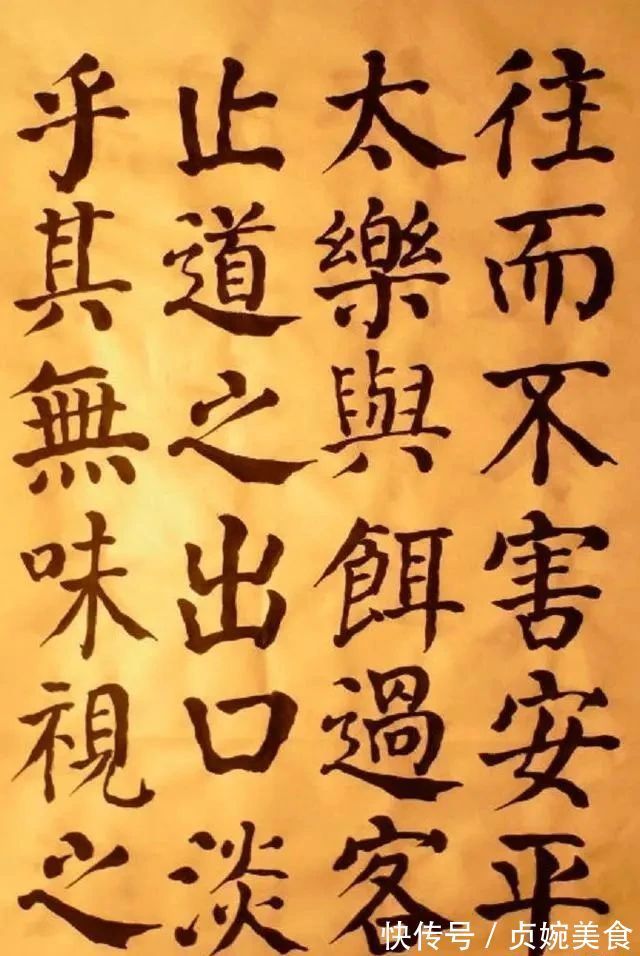 往而不害安平
太樂與餌過客
止道之出口淡
乎其無味視之
快传号 / 贞婉美食